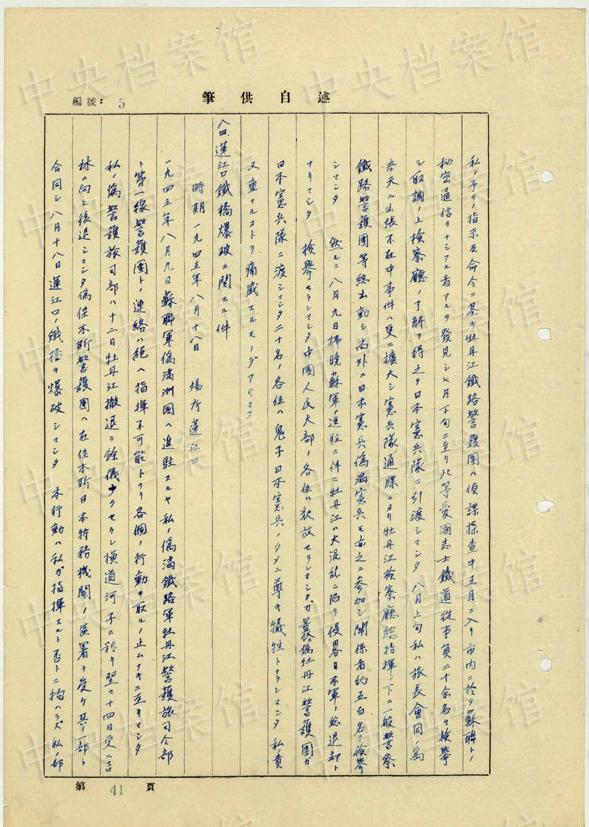 編號：5
筆供自述
私ノ予ノ指示及命令ニ基キ牡丹江鐵路警護團ハ偵諜捜査中五月ニ入リ市内ニ於テ蘇聯トノ
秘密通信ヲナシアル者アルヲ發見シ七月下旬ニ至リ此等ノ愛國志士鐵道從事員二十余名ヲ檢擧
シ取調上檢察廳ノ了解ヲ得之ヲ日本憲兵隊ニ引渡シマシタ 八月上旬私ハ旅長會同ノ為
奉天ニ出張不在中事件ハ更ニ擴大シ憲兵隊通牒ニヨリ牡丹江檢察廳總指揮ノ下ニ一般警察
鐵路警護團等總出動シ尚外ニ日本憲兵偽滿憲兵モ亦之ニ参加シ關係者約五百名ヲ檢擧
シマシタ 然ルニ八月九日拂曉蘇軍ノ進駐ニ伴ヒ牡丹江ハ大混乱ニ陥リ侵畧日本軍ノ總退却ト
ナリマシタ 檢擧セラレマシタ中國人民大部ノ各位ハ釈放セラレマシタガ最初偽牡丹江警護團ガ
日本憲兵隊ニ渡シマシタ二十名ノ各位ハ鬼子日本憲兵ノタメニ尊キ犠牲トナラレマシタ 私責
又重大ナルコトヲ痛感スルモノデアリマス
八四 蓮江口鐵橋爆破ニ関スル件
時期 一九四五年八月十八日 場所 蓮江口
一九四五年八月九日蘇聯軍偽滿洲國ヘ進駐スルヤ私ノ偽滿鐵路軍牡丹江警護旅司令部
ト第一線警護團トノ連絡ハ絶ヘ指揮不可能トナリ各個ノ行動ヲ取ルノ止ムナキニ至リマシタ
私ノ偽警護旅司部ハ十二日牡丹江撤退ヲ餘儀ナクセラレ横道河子ニ移リ翌々十四日更ニ吉
林ニ向ヒ後退シマシタ偽佳木斯警護團ハ在佳木斯日本特務機關ノ區署ヲ受ケ其ノ一部ト
合同シ八月十八日蓮江口ノ鐵橋ヲ爆破シマシタ 本行動ハ私ガ指揮スルト否トニ拘ハラズ私ノ部
第 41 頁
中央档案馆